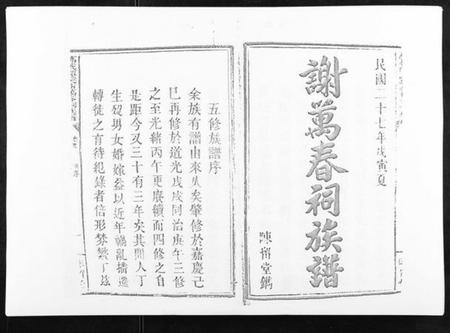 民國二十七年戊寅夏
謝萬春祠族譜
陳留堂鐫
五修族譜序
矣族有譜由來久矣肇修於嘉慶己
巳再修於道光戊戌同治庚午三修
之至光緒丙午更廣續而四修之自
是距今又三十有三年矣其間人丁
生歿男女婚嫁益以近年禍亂播遷
轉徙之有待紀錄者倍形棼繁丁茲